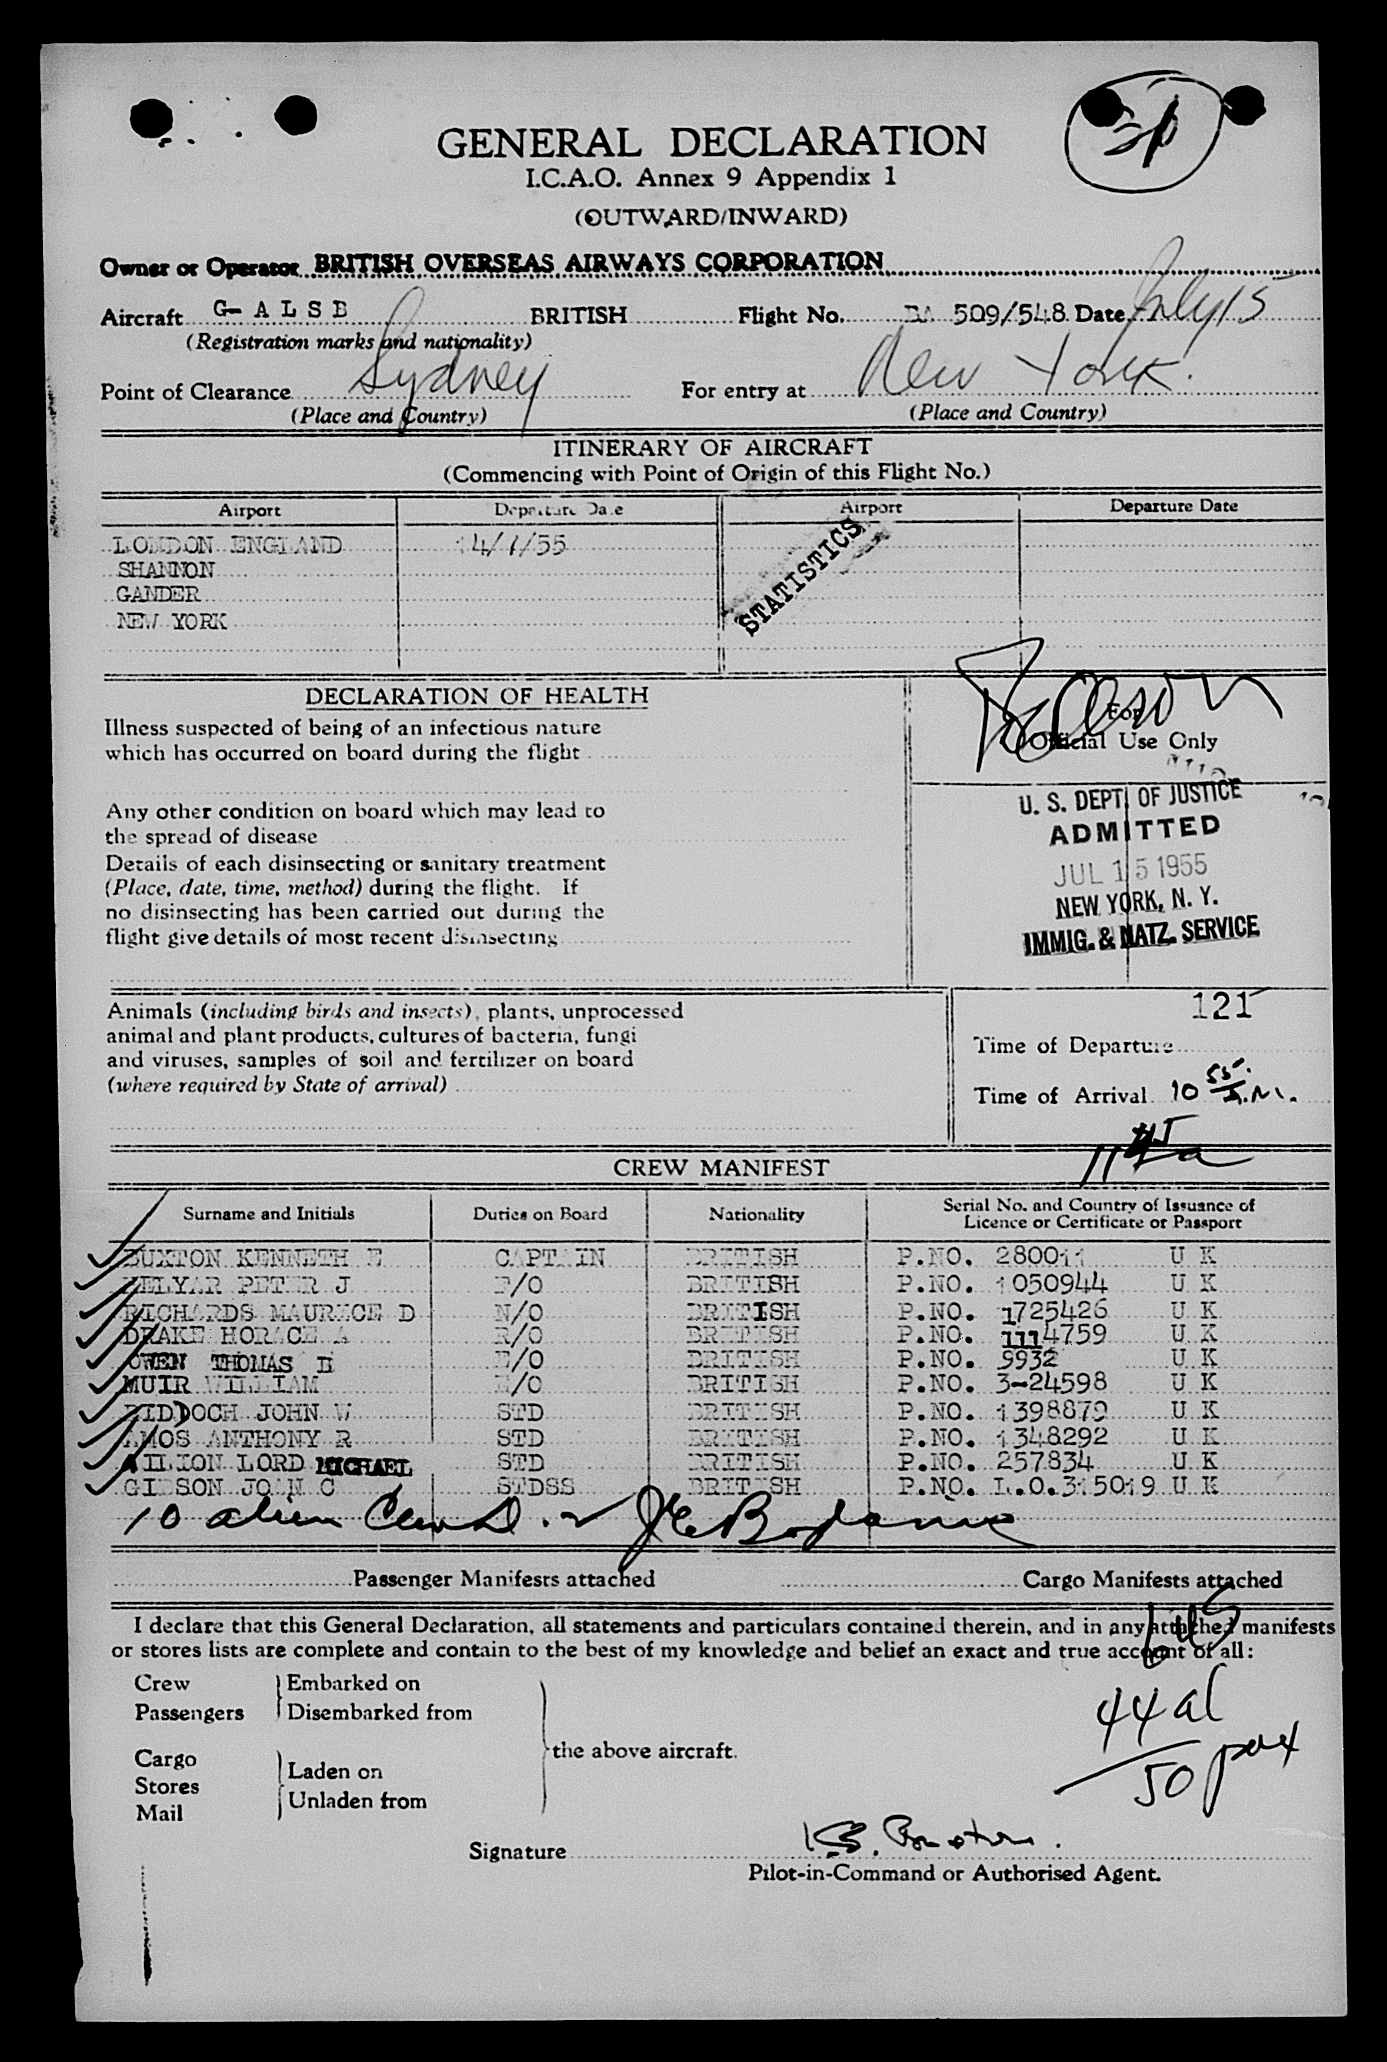 GENERAL DECLARATION
I.C.A.O. Annex 9 Appendix 1
(OUTWARD/INWARD)
Owner or Operator BRITISH OVERSEAS AIRWAYS CORPORATION
Aircraft G- A L S B BRITISH Flight No. BA 509/548 Date July 15
(Registration marks and nationality)
Point of Clearance Sydney For entry at New York.
(Place and Country) (Place and Country)
ITINERARY OF AIRCRAFT
(Commencing with Point of Origin of this Flight No.)
Airport Departure Date Airport Departure Date
LONDON ENGLAND 14/7/55
SHANNON
GANDER
NEW YORK
STATISTICS
DECLARATION OF HEALTH
Illness suspected of being of an infectious nature
which has occurred on board during the flight
For
Official Use Only
Any other condition on board which may lead to
the spread of disease
Details of each disinsecting or sanitary treatment
(Place, date, time, method) during the flight. If
no disinsecting has been carried out during the
flight give details of most recent disinsecting
U. S. DEPT. OF JUSTICE
ADMITTED
JUL 15 1955
NEW YORK, N. Y.
IMMIG. & NATZ. SERVICE
Animals (including birds and insects), plants, unprocessed
animal and plant products, cultures of bacteria, fungi
and viruses, samples of soil and fertilizer on board
(where required by State of arrival)
121
Time of Departure
Time of Arrival 10 55 A.M.
11 45 a
CREW MANIFEST
Surname and Initials Duties on Board Nationality Serial No. and Country of Issuance of
Licence or Certificate or Passport
BUXTON KENNETH E CAPTAIN BRITISH P.NO. 280011 U K
PETER J F/O BRITISH P.NO. 1050944 U K
RICHARDS MAURICE D N/O BRITISH P.NO. 1725426 U K
DRAKE HORACE A R/O BRITISH P.NO. 1114759 U K
OWEN THOMAS H E/O BRITISH P.NO. 9932 U K
MUIR WILLIAM E/O BRITISH P.NO. 3-24598 U K
RIDDOCH JOHN W STD BRITISH P.NO. 1398879 U K
AMOS ANTHONY R STD BRITISH P.NO. 1348292 U K
LORD MICHAEL STD BRITISH P.NO. 257834 U K
GIBSON JOAN C STDSS BRITISH P.NO. L.O.315019 U K
10 alien Crew
Passenger Manifests attached Cargo Manifests attached
I declare that this General Declaration, all statements and particulars contained therein, and in any attached manifests
or stores lists are complete and contain to the best of my knowledge and belief an exact and true account of all:
6 US
44 al
50 pax
Crew Embarked on
Passengers Disembarked from
the above aircraft.
Cargo
Stores Laden on
Mail Unladen from
Signature
Pilot-in-Command or Authorised Agent.